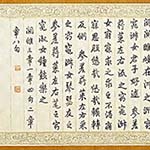 關關雎鳩在河之洲
窈窕淑女君子好逑參差
荇菜左右流之窈窕
淑女寤寐求之求之不得
寤寐思服悠哉悠哉輾轉
反側參差荇菜左右采
之窈窕淑女琴瑟友
之參差荇菜左右芼
之窈窕淑女鐘鼓樂之
關雎三章一章四句二
章八句